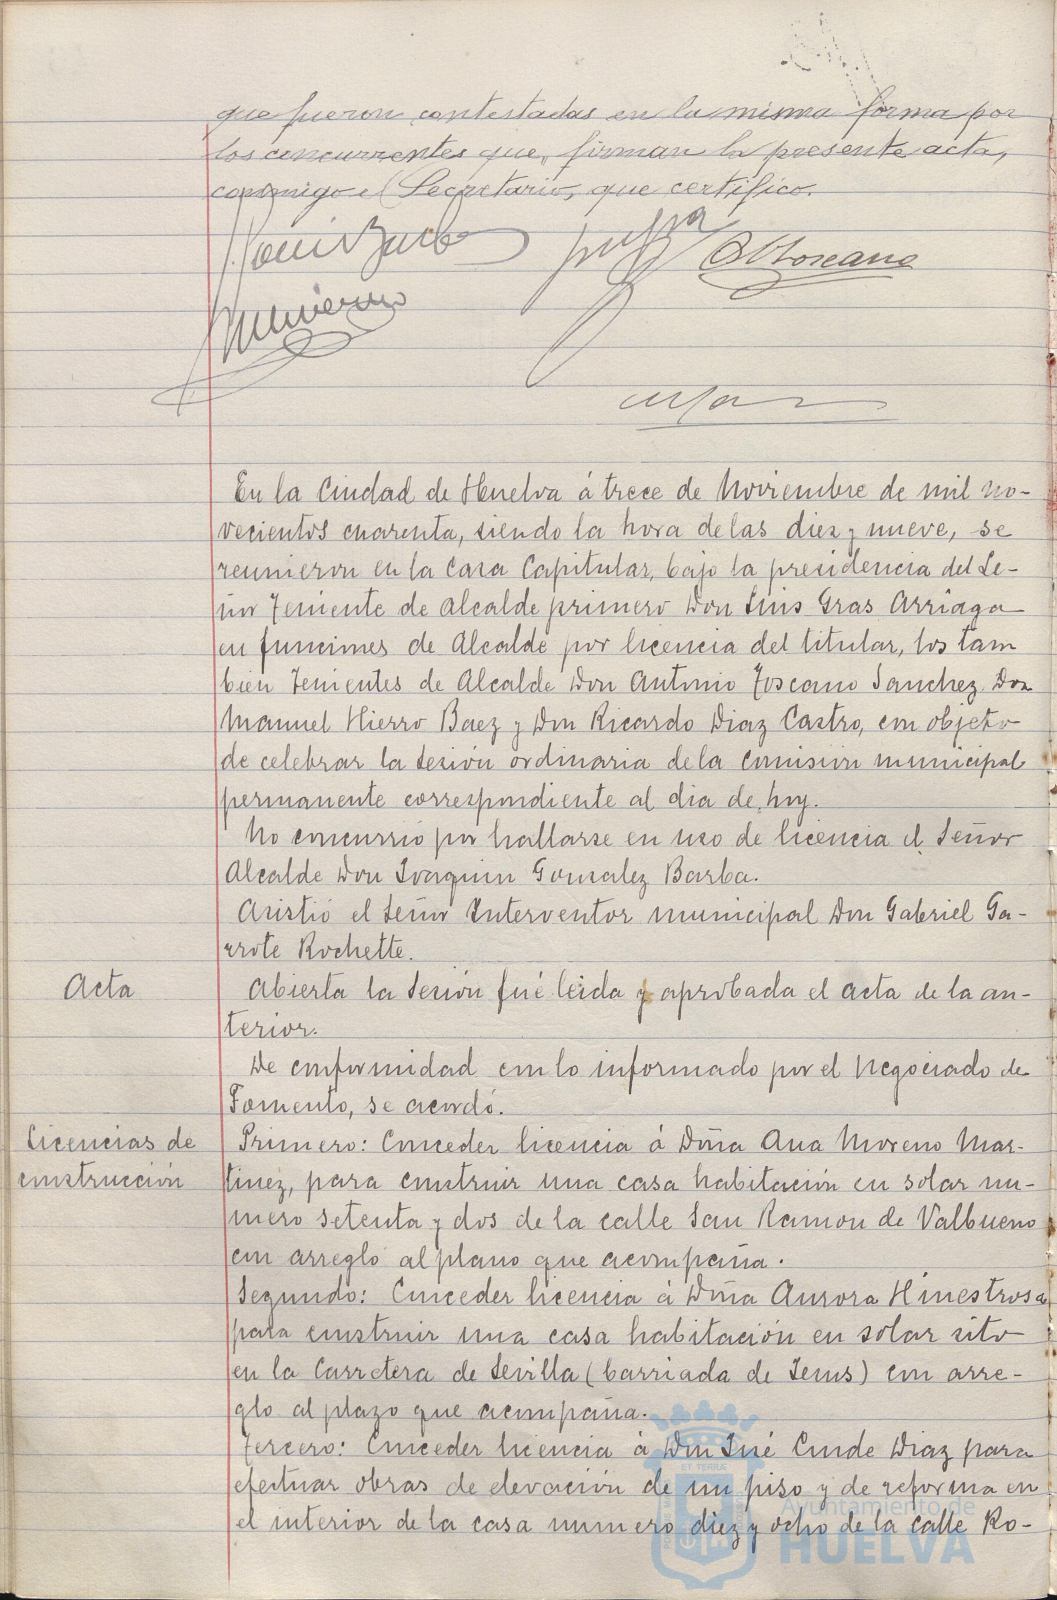 que fueron contestadas en la misma forma por
los concurrentes que firman la presente acta,
conmigo el Secretario, que certifico.
A Toscano
En la Ciudad de Huelva á trece de Noviembre de mil no-
vecientos cuarenta, siendo la hora de las diez y nueve, se
reunieron en la Casa Capitular, bajo la presidencia del Se-
ñor Teniente de Alcalde primero Don Luis Gras Arriaga
en funciones de Alcalde por licencia del titular, los tam
bien Tenientes de Alcalde Don Antonio Toscano Sanchez Don
Manuel Hierro Baez y Don Ricardo Diaz Castro, con objeto
de celebrar la sesión ordinaria de la comisión municipal
permanente correspondiente al dia de hoy.
No concurrió por hallarse en uso de licencia el Señor
Alcalde Don Joaquin Gonzalez Barba.
Asistió el Señor Interventor municipal Don Gabriel Ga-
rrote Rochette.
Acta
Abierta la sesión fué leida y aprobada el acta de la an-
terior.
De conformidad con lo informado por el Negociado de
Fomento, se acordó.
Licencias de
construcción
Primero: Conceder licencia á Doña Ana Moreno Mar-
tinez, para construir una casa habitación en solar nu-
mero setenta y dos de la calle San Ramon de Valbueno
con arreglo al plano que acompaña.
Segundo: Conceder licencia á Doña Aurora Hinestrosa
para construir una casa habitación en solar sito
en la Carretera de Sevilla (barriada de Jesus) con arre-
glo al plazo que acompaña.
Tercero: Conceder licencia á Don José Conde Diaz para
efectuar obras de elevación de un piso y de reforma en
el interior de la casa numero diez y ocho de la calle Ro-
Ayuntamiento de
HUELVA